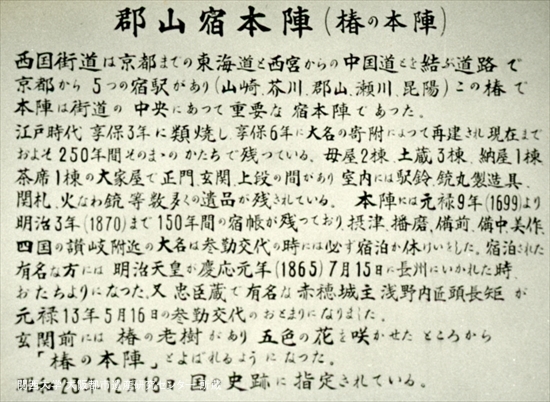 郡山宿本陣(椿の本陣)
西国街道は京都までの東海道と西宮からの中国道とを結ぶ道路で
京都から5つの宿駅があり(山崎、芥川、郡山、瀬川、昆陽)この椿で
本陣は街道の中央にあつて重要な宿本陣であった。
江戸時代享保3年に類焼し、享保6年に大名の寄附によつて再建され現在まで
およそ250年間そのまゝのかたちで残つている、母屋2棟、土蔵3棟、納屋1棟
茶席1棟の大家屋で正門、玄関、上段の間があり室内には駅鈴、銃丸製造具、
関札、火なわ銃等数多くの遺品が残されている。 本陣には元禄9年(1699)より
明治3年(1870)まで150年間の宿帳が残っており、摂津、播磨、備前、備中、美作、
四国の讃岐附近の大名は参勤交代の時には必ず宿泊か休けいをした、宿泊された
有名な方には明治天皇が慶応元年(1865)7月15日に長州にいかれた時、
おたちよりになつた、又忠臣蔵で有名な赤穂城主浅野内匠頭長矩が
元禄13年5月16日の参勤交代のおとまりになりました。
玄関前には椿の老樹があり五色の花を咲かせたところから
「椿の本陣」とよばれるようになつた。
昭和23年12月18日国の史跡に指定されている。